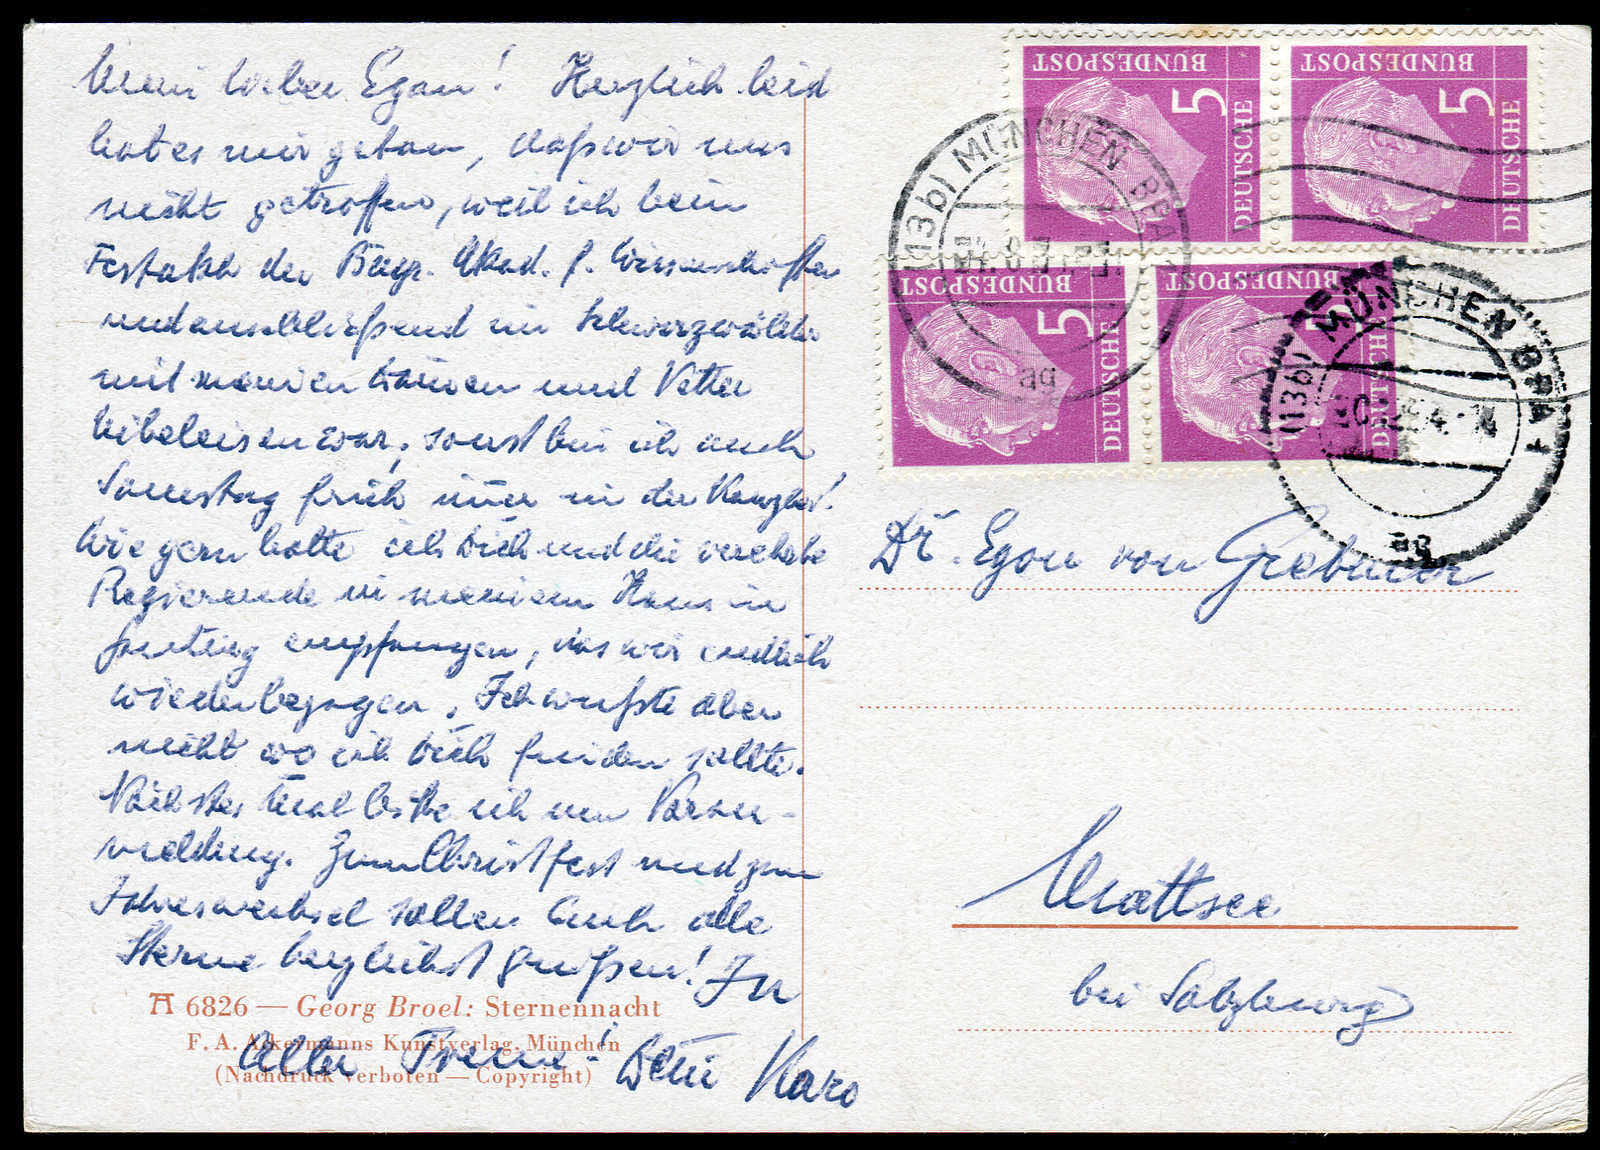 Mein lieber Egon! Herzlich leid
hat es mir getan, daß wir uns
nicht getroffen, weil ich beim
Festakt der Bayr. Akad. f. Wissenschaften
und anschließend im Schwarzwälder
mit meinen Damen und Vetter
war, sonst bin ich auch
Samstag früh immer in der Kanzlei.
Wie gern hätte ich Dich und die verehrte
Regierende in meinem Haus in
Gauting empfangen, das wir endlich
wiederbezogen. Ich wußte aber
nicht wo ich Dich finden sollte.
Nächstes Mal bitte ich um Voran-
meldung. Zum Christfest und zum
Jahreswechsel sollen Euch alle
Sterne herzlichst grüßen! In
alter Treue! Dein Karo
A 6826 — Georg Broel: Sternennacht
F. A. Ackermanns Kunstverlag, München
(Nachdruck verboten — Copyright)
DEUTSCHE BUNDESPOST 5
DEUTSCHE BUNDESPOST 5
DEUTSCHE BUNDESPOST 5
DEUTSCHE BUNDESPOST 5
(13b) MÜNCHEN BPA
ag
(13b) MÜNCHEN BPA 1
ag
Dr. Egon von
Mattsee
bei Salzburg